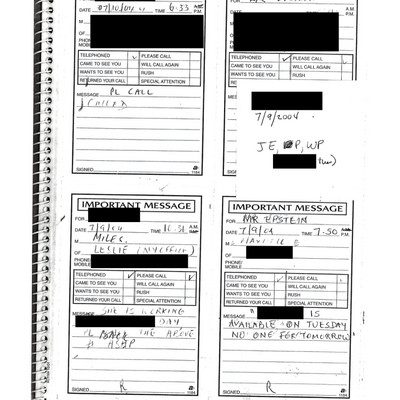 DATE 07/10/04 TIME 6:33 A.M. P.M.
M
OF
PHONE/
MOBILE
TELEPHONED PLEASE CALL
CAME TO SEE YOU WILL CALL AGAIN
WANTS TO SEE YOU RUSH
RETURNED YOUR CALL SPECIAL ATTENTION
MESSAGE PL CALL
SIGNED 1184
TELEPHONED PLEASE CALL
CAME TO SEE YOU WILL CALL AGAIN
7/9/2004
JE, WP
SIGNED 1184
IMPORTANT MESSAGE
FOR
DATE 7/9/04 TIME A.M. P.M.
M
OF LESLIE (NY OFFICE)
PHONE/
MOBILE
TELEPHONED PLEASE CALL
CAME TO SEE YOU WILL CALL AGAIN
WANTS TO SEE YOU RUSH
RETURNED YOUR CALL SPECIAL ATTENTION
MESSAGE SHE IS WORKING
DAY
PL THE ABOVE
ASAP
SIGNED R 1184
IMPORTANT MESSAGE
FOR MR EPSTEIN
DATE 7/9/04 TIME 7:50 P.M.
M
OF
PHONE/
MOBILE
TELEPHONED PLEASE CALL
CAME TO SEE YOU WILL CALL AGAIN
WANTS TO SEE YOU RUSH
RETURNED YOUR CALL SPECIAL ATTENTION
MESSAGE IS
AVAILABLE ON TUESDAY
NO ONE FOR TOMORROW
SIGNED R 1184